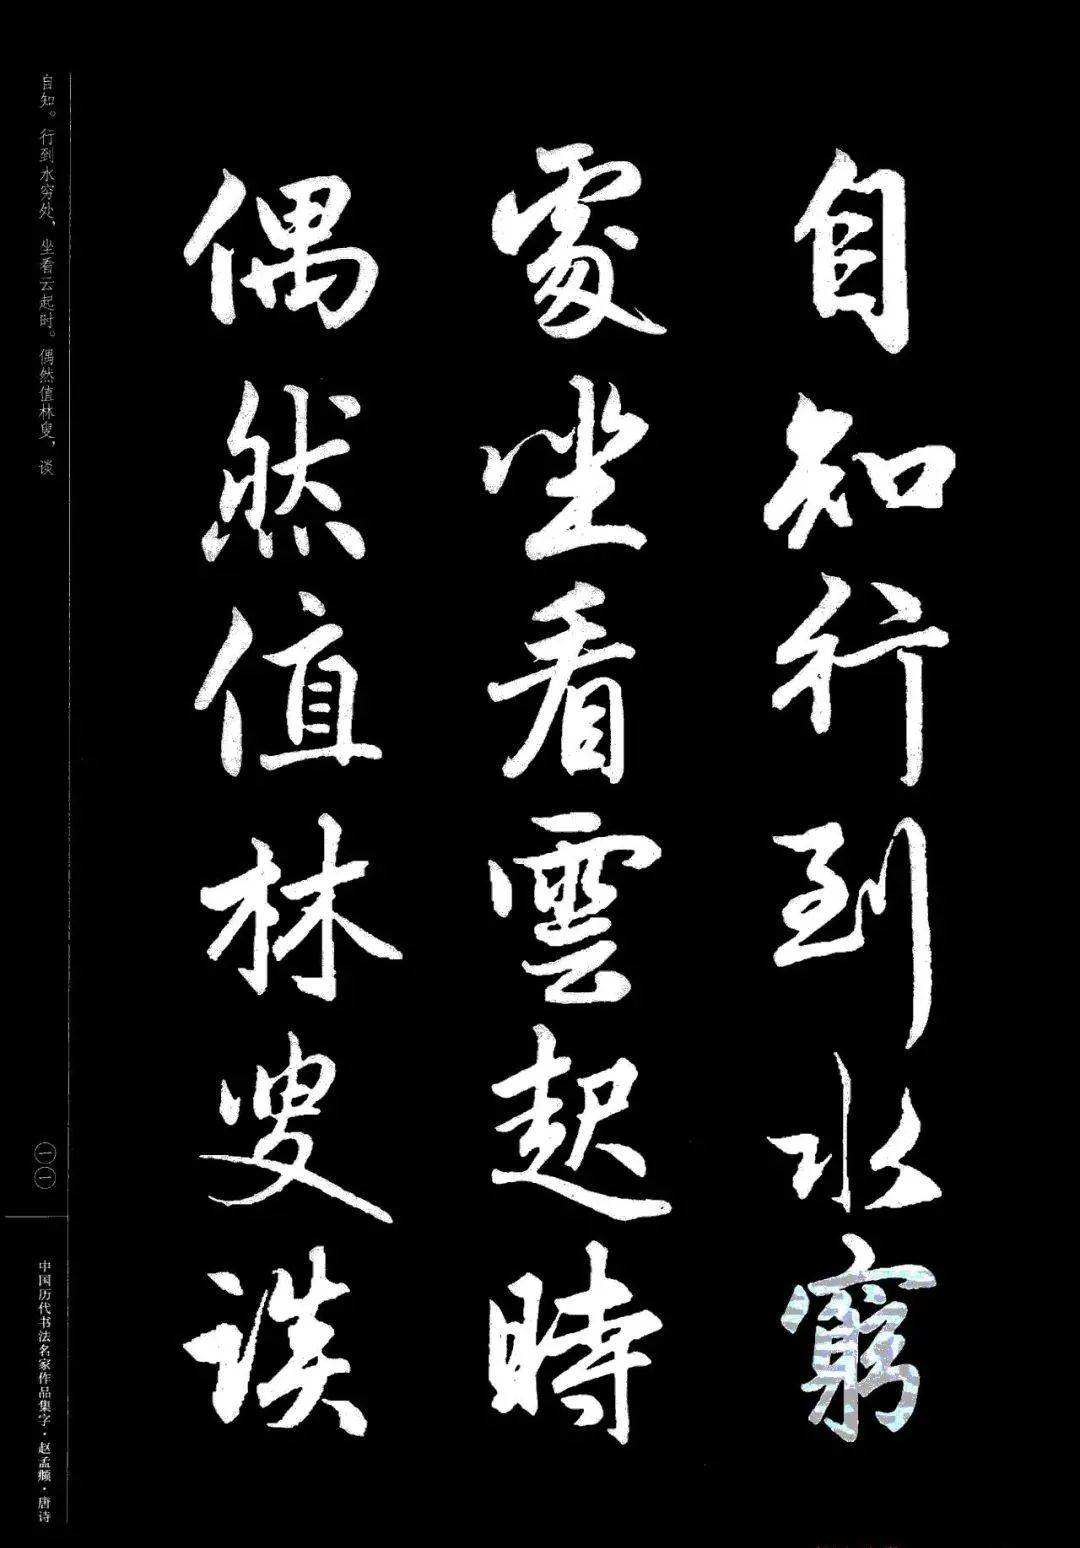 自知行到水窮
處坐看雲起時
偶然值林叟談
自知。行到水穷处，坐看云起时。偶然值林叟，谈
一一
中国历代书法名家作品集字·赵孟頫·唐诗